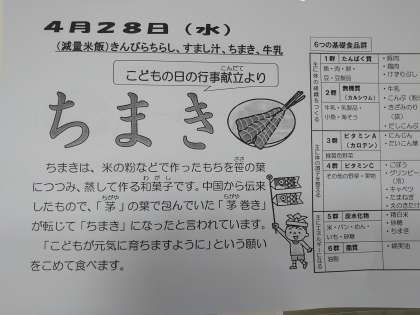 4月28日（水）
（減量米飯）きんぴらちらし、すまし汁、ちまき、牛乳
こどもの日の行事献立より
こんだて
ちまき
ちまきは、米の粉などで作ったもちを笹の葉
ささ
につつみ、蒸して作る和菓子です。中国から伝来
わがし
したもので、「茅」の葉で包んでいた「茅巻き」
ちがや
ちがや
が転じて「ちまき」になったと言われています。
「こどもが元気に育ちますように」という願い
をこめて食べます。
6つの基礎食品群
主に体の組織をつくる
1群 たんぱく質
魚・肉・卵・
豆・豆製品
・豚肉
・鶏肉
・けずりぶし
2群 無機質
（カルシウム）
牛乳・乳製品・
小魚・海そう
・牛乳
・こんぶ
・きざみのり
・だしこんぶ
3群 ビタミンA
（カロテン）
緑黄色野菜
・にんじん
・だいこん葉
4群 ビタミンC
その他の野菜・果物
・ごぼう
・グリンピー
（冷）
・キャベツ
・たまねぎ
・えのきたけ
5群 炭水化物
米・パン・めん・
いも・砂糖
・精白米
・砂糖
・ちまき
6群 脂質
油脂
・綿実油